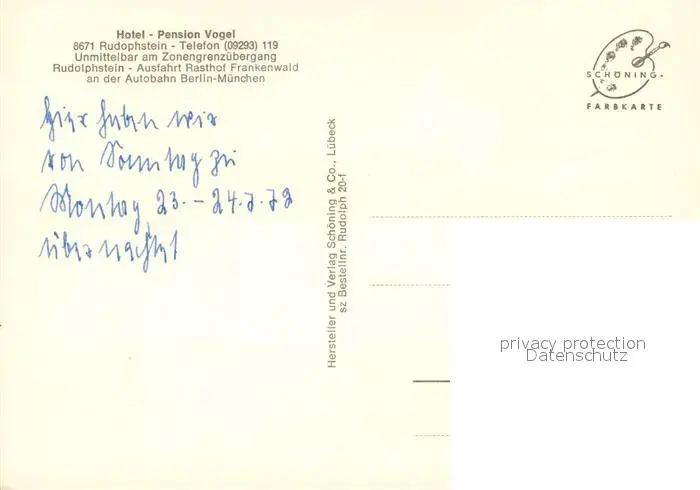 Hotel - Pension Vogel
8671 Rudophstein - Telefon (09293) 119
Unmittelbar am Zonengrenzübergang
Rudolphstein - Ausfahrt Rasthof Frankenwald
an der Autobahn Berlin-München
SCHÖNING-
FARBKARTE
Hier haben wir
von Sonntag zu
Montag 23. - 24.7.72
übernachtet
Hersteller und Verlag Schöning & Co., Lübeck
sz Bestellnr. Rudolph 20-f
privacy protection
Datenschutz